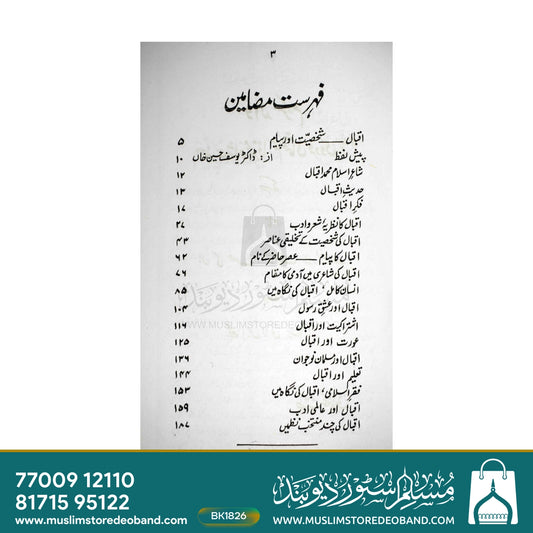 ۳
فہرست مضامین
اقبال ـــــ شخصیت اور پیام ۵
پیش لفظ از: ڈاکٹر یوسف حسین خاں ۱۰
شاعرِ اسلام محمد اقبال ۱۲
حدیثِ اقبال ۱۳
فکرِ اقبال ۱۷
اقبال کا نظریۂ شعر و ادب ۲۷
اقبال کی شخصیت کے تخلیقی عناصر ۴۳
اقبال کا پیام ـــــ عصرِ حاضر کے نام ۶۲
اقبال کی شاعری میں آدمی کا مقام ۷۶
انسانِ کامل، اقبال کی نگاہ میں ۸۵
اقبال اور عشقِ رسول ۱۰۴
اشتراکیت اور اقبال ۱۱۶
عورت اور اقبال ۱۲۵
اقبال اور مسلمان نوجوان ۱۳۶
تعلیم اور اقبال ۱۴۴
فقرِ اسلامی، اقبال کی نگاہ میں ۱۵۳
اقبال اور عالمی ادب ۱۵۹
اقبال کی چند منتخب نظمیں ۱۸۷
مسلم سٹور دیوبند
WWW.MUSLIMSTOREDEOBAND.COM
77009 12110
81715 95122
www.muslimstoredeoband.com
BK1826
مسلم سٹور دیوبند
WWW.MUSLIMSTOREDEOBAND.COM